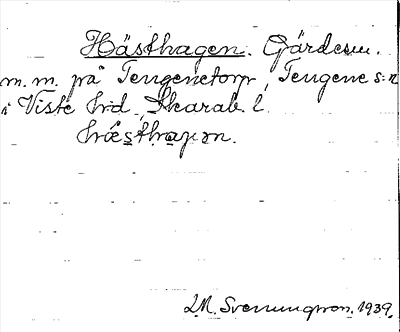 Hästhagen. Gärdesn.
m. m. på Tengenetorp, Tengene s:n
i Viste hrd, Skarab. l.
hæsthaɡɐn.
LM. Svenungsson. 1939.